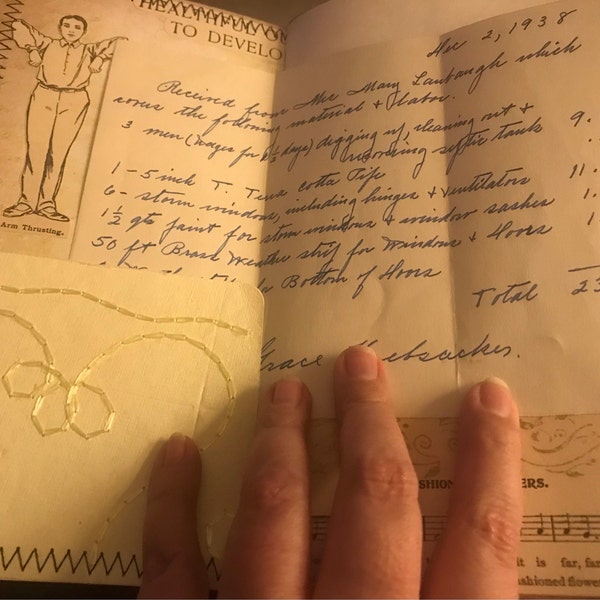 HEALTHFUL
TO DEVELO
Arm Thrusting.
Dec 2, 1938
Received from Mrs Mary Laubaugh which
cover the following material & labor.
3 men (wages for days) digging up, cleaning out &
removing septic tank 9.
1 - 5 inch T. Terra cotta Pipe
6 - storm windows, including hinges & ventilators 11.
1½ qts paint for storm windows & window sashes 1.
50 ft Brass Weather strip for Windows & Doors 1.
Bottom of Doors
Total 23
Grace
SHION ERS.
it is far, far
ashioned flower